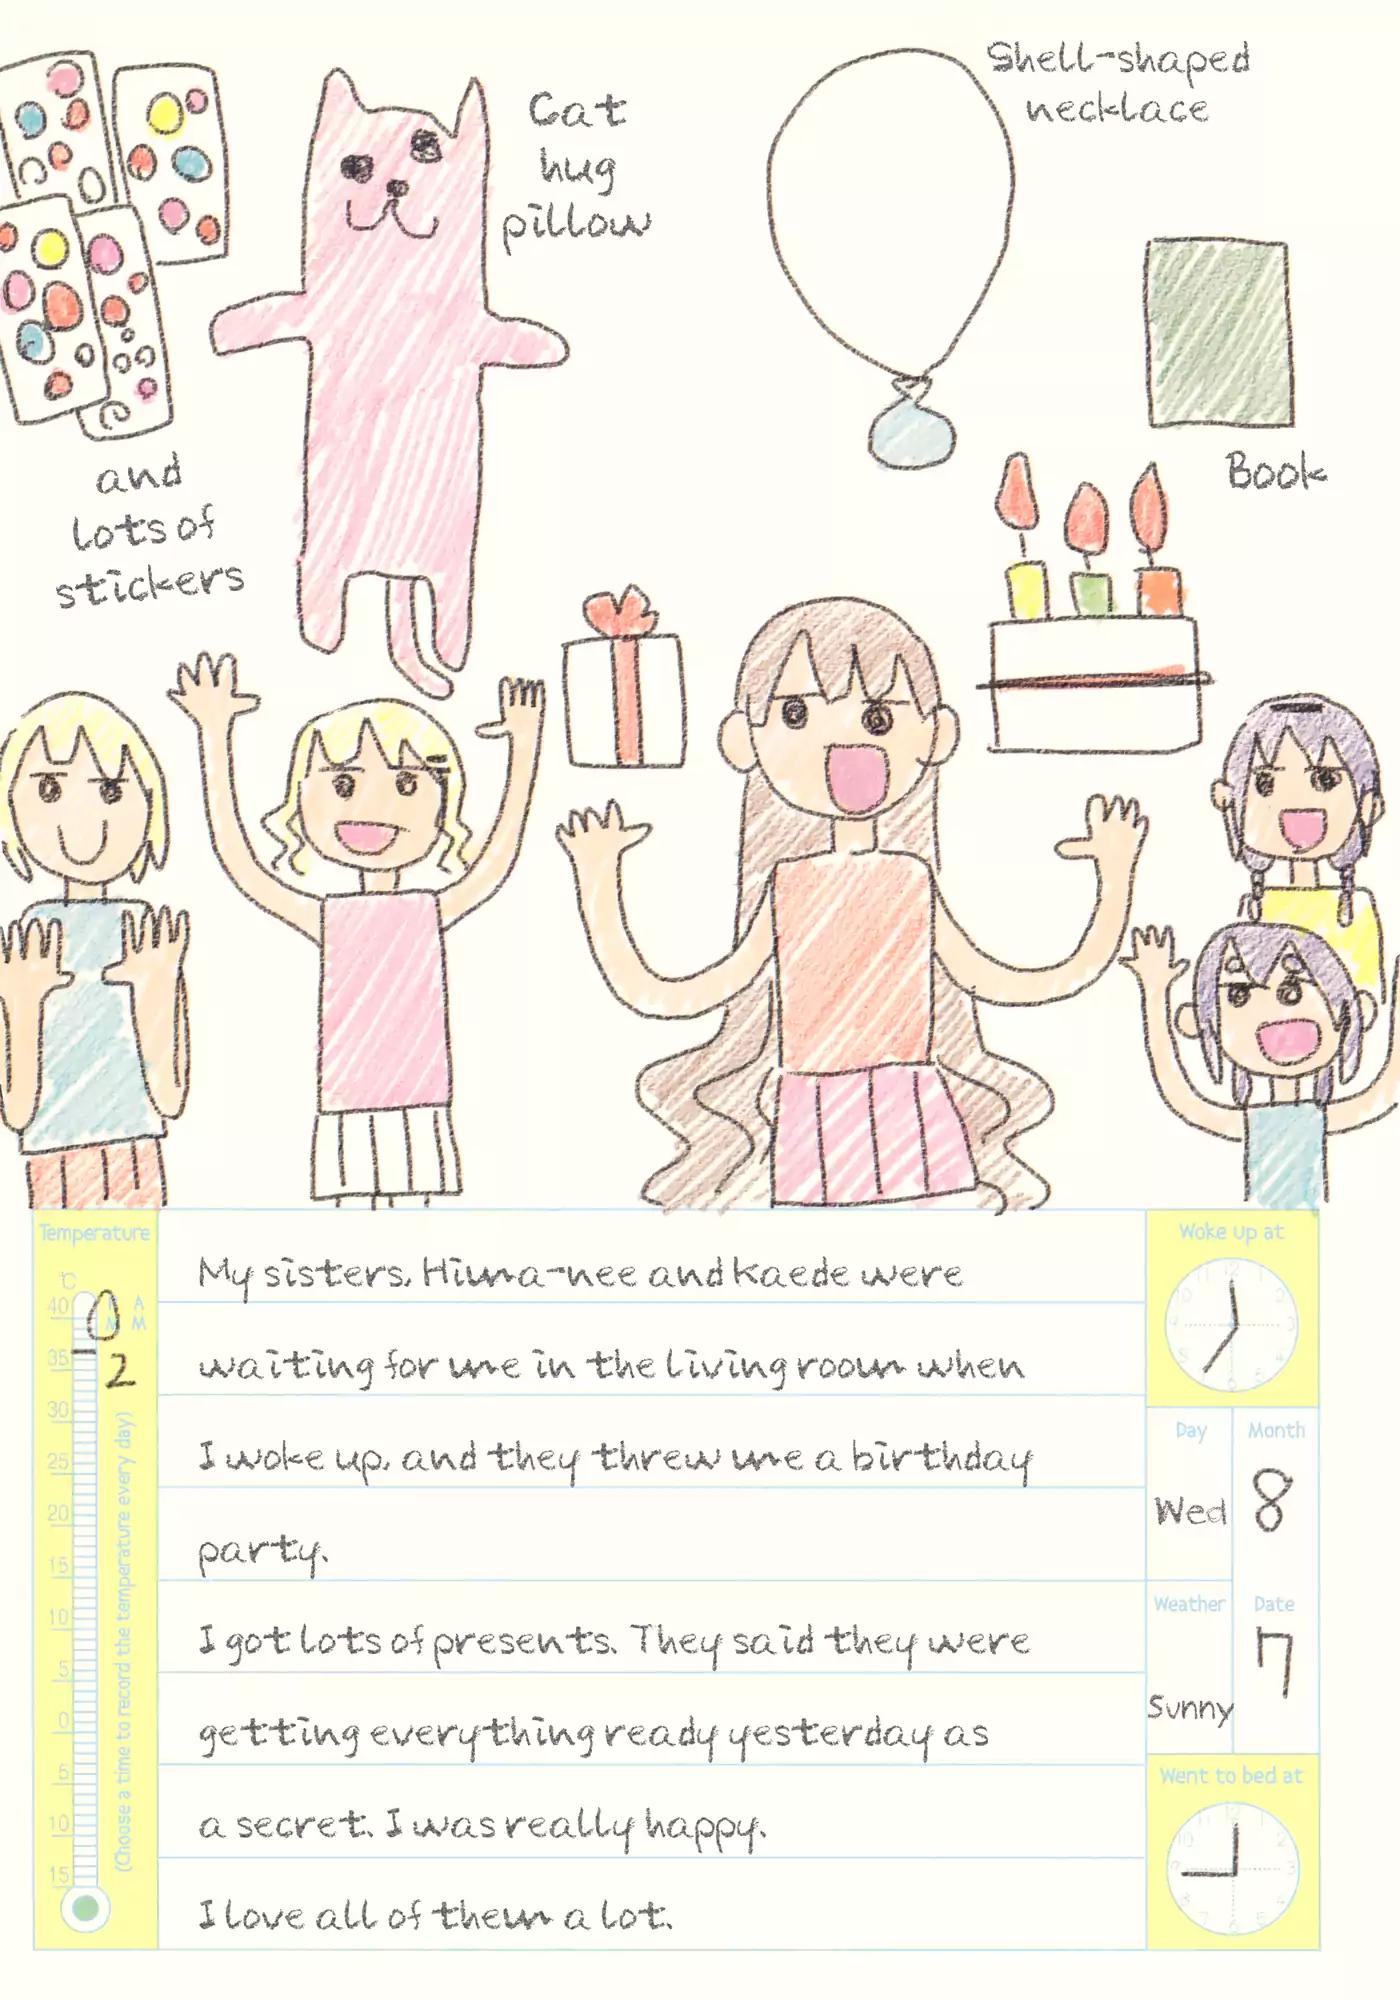 Shell-shaped
necklace
Cat
hug
pillow
Book
and
lots of
stickers
Temperature
°C
40
35
30
25
20
15
10
5
0
5
10
15
A
M
0
2
(Choose a time to record the temperature every day)
My sisters, Hima-nee and Kaede were
waiting for me in the living room when
I woke up, and they threw me a birthday
party.
I got lots of presents. They said they were
getting everything ready yesterday as
a secret. I was really happy.
I love all of them a lot.
Woke up at
Day
Month
Wed
8
Weather
Date
Sunny
7
Went to bed at